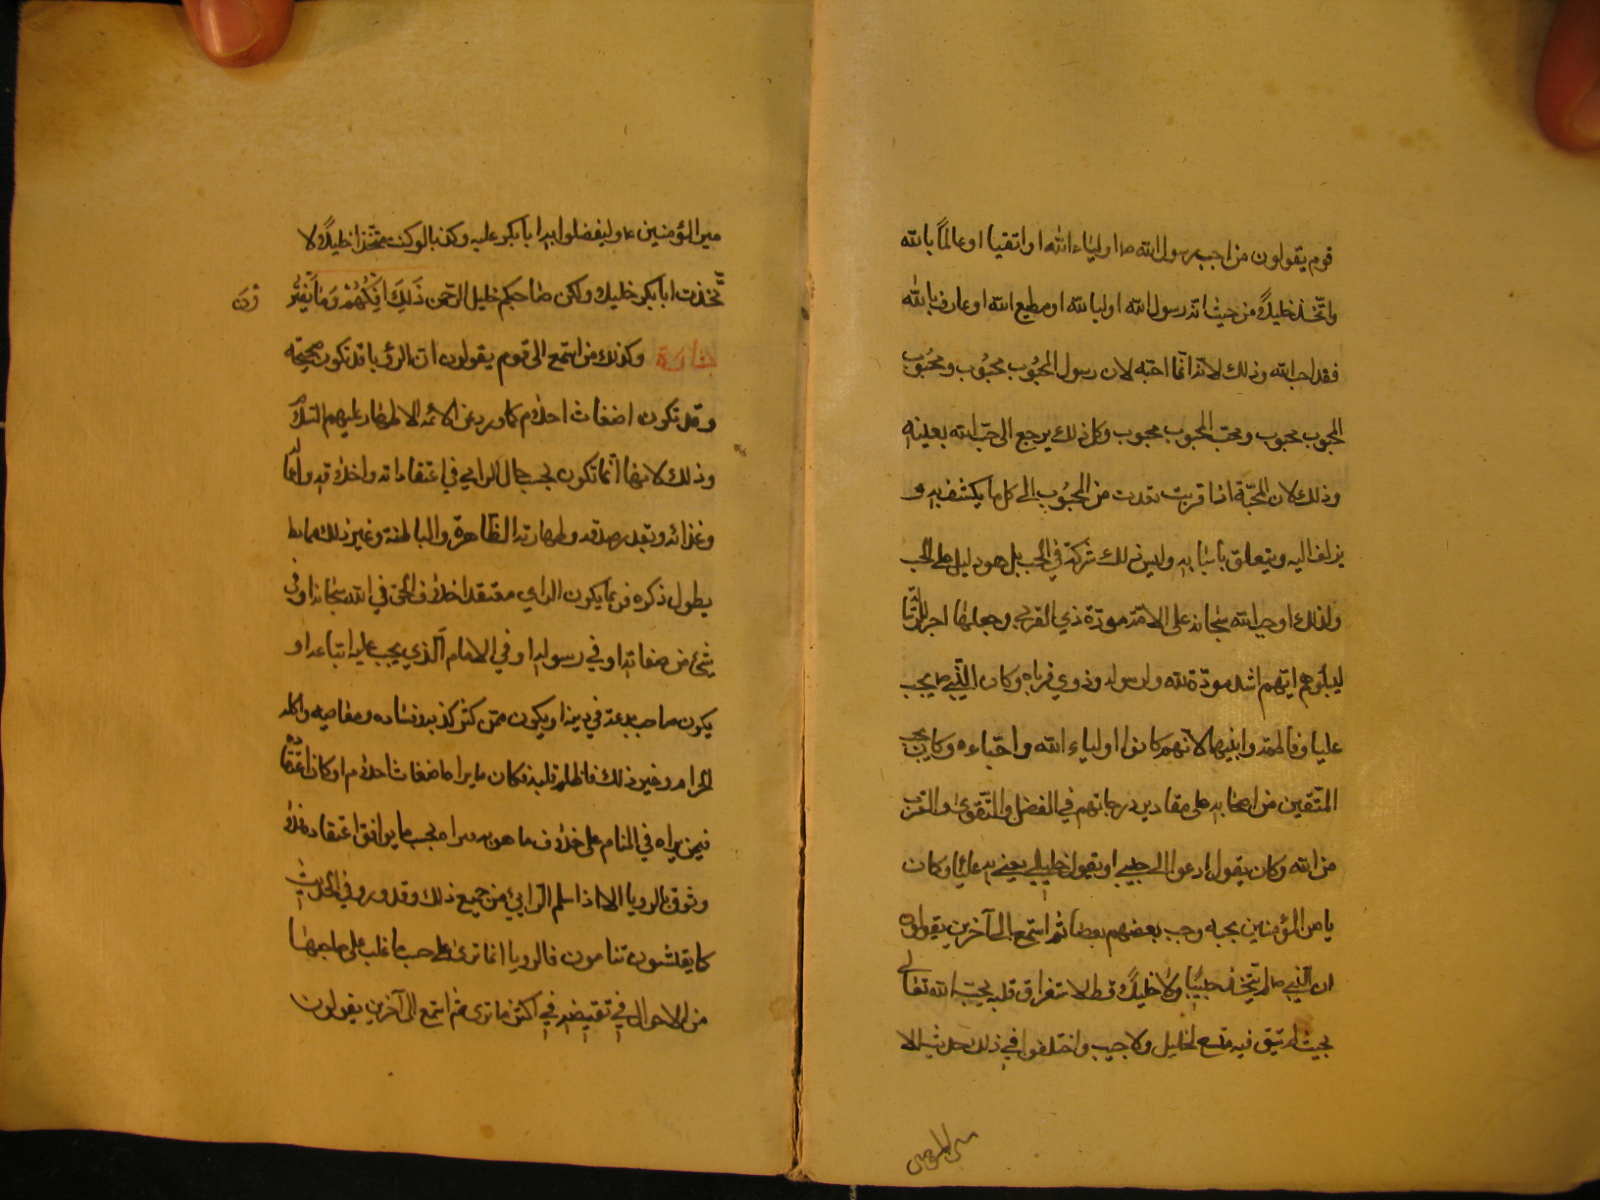 قوم يقولون من احب رسول الله ص او اولياء الله او اتقيا او عالماً بالله
واتخذ خليلاً من حيث انه رسول الله او ليا لله او مطيع الله او عارف بالله
فقد احب الله وذلك لانه انما احبه لان رسول المحبوب محبوب ومحبوب
المحبوب محبوب ومحب المحبوب محبوب وكل ذلك يرجع الى حب الله بعينه
وذلك لان المحبة اذا قربت تعدت من المحبوب الى كل ما يكشف به و
يزلف اليه ويتعلق باسبابه وليس ذلك شركة في الحب بل هو دليل على الحب
ولذلك اوجب الله سبحانه على الامة مودة ذي القربى وجعلها اجر
ليبلوهم ايهم اشد مودة لله ولرسوله وذوي قرباه وكان النبي ص يحب
عليا وفاطمة وابنيهما لانهم كانوا اولياء الله واحباءه وكان يحب
المتقين من اصحابه على مقادير درجاتهم في الفضل والتقوى والقرب
من الله وكان يقول ادعوا الى حبيبي او يقول خليلي يعني به عليا وكان
يامر المؤمنين بحبه وحب بعضهم بعضا ثم استمع الى آخرين يقولون
ان النبي ص لم يتخذ حبيبا ولا خليلاً قط لاستغراق قلبه بحب الله تعالى
بحيث لم يبق فيه متسع لخليل ولا حبيب واختلفوا في ذلك حديث الا
مير المؤمنين ع وليفضلوا به ابا بكر عليه وكذبا لو كنت متخذا خليلاً لا
تخذت ابا بكر خليلا ولكن صاحبكم خليل الرحمن ذَلِكَ اِفْكُهُمْ وَمَا يَفْتَرُ
ون
وكذلك من استمع الى قوم يقولون ان الرؤيا قد تكون صحيحة
وقد تكون اضغاث احلام كما ورد عن الائمة الاطهار عليهم السلام
وذلك لانها انما تكون بحسب حال الرايي في اعتقاداته واخلاقه واعما
له
وغذائه وبقدر صدقه وطهارته الظاهرة والباطنة وغير ذلك مما
يطول ذكره فربما يكون الرايي معتقد اخلاف الحق في الله سبحانه او في
شئ من صفاته او في رسوله او في الامام الذي يجب عليه اتباعه او
يكون صاحب بدعة في دينه او يكون ممن كثر كذبه وفساده ومعاصيه واكله
الحرام وغير ذلك فاظلم قلبه فكان ما يراه اضغاث احلام او كان اعتقا
ده
فيمن يراه في المنام على خلاف ما هو به فيراه بحسب ما يوافق اعتقاده فلا
وثوق بالرويا الا اذا سلم الرايي من جميع ذلك وقد ورد في الحديث
كما يعيشون تنامون فالرويا انما ترى على حسب ما غلب على صاحبها
من الاحوال في يقيضه في اكثر ما ترى ثم استمع الى آخرين يقولون